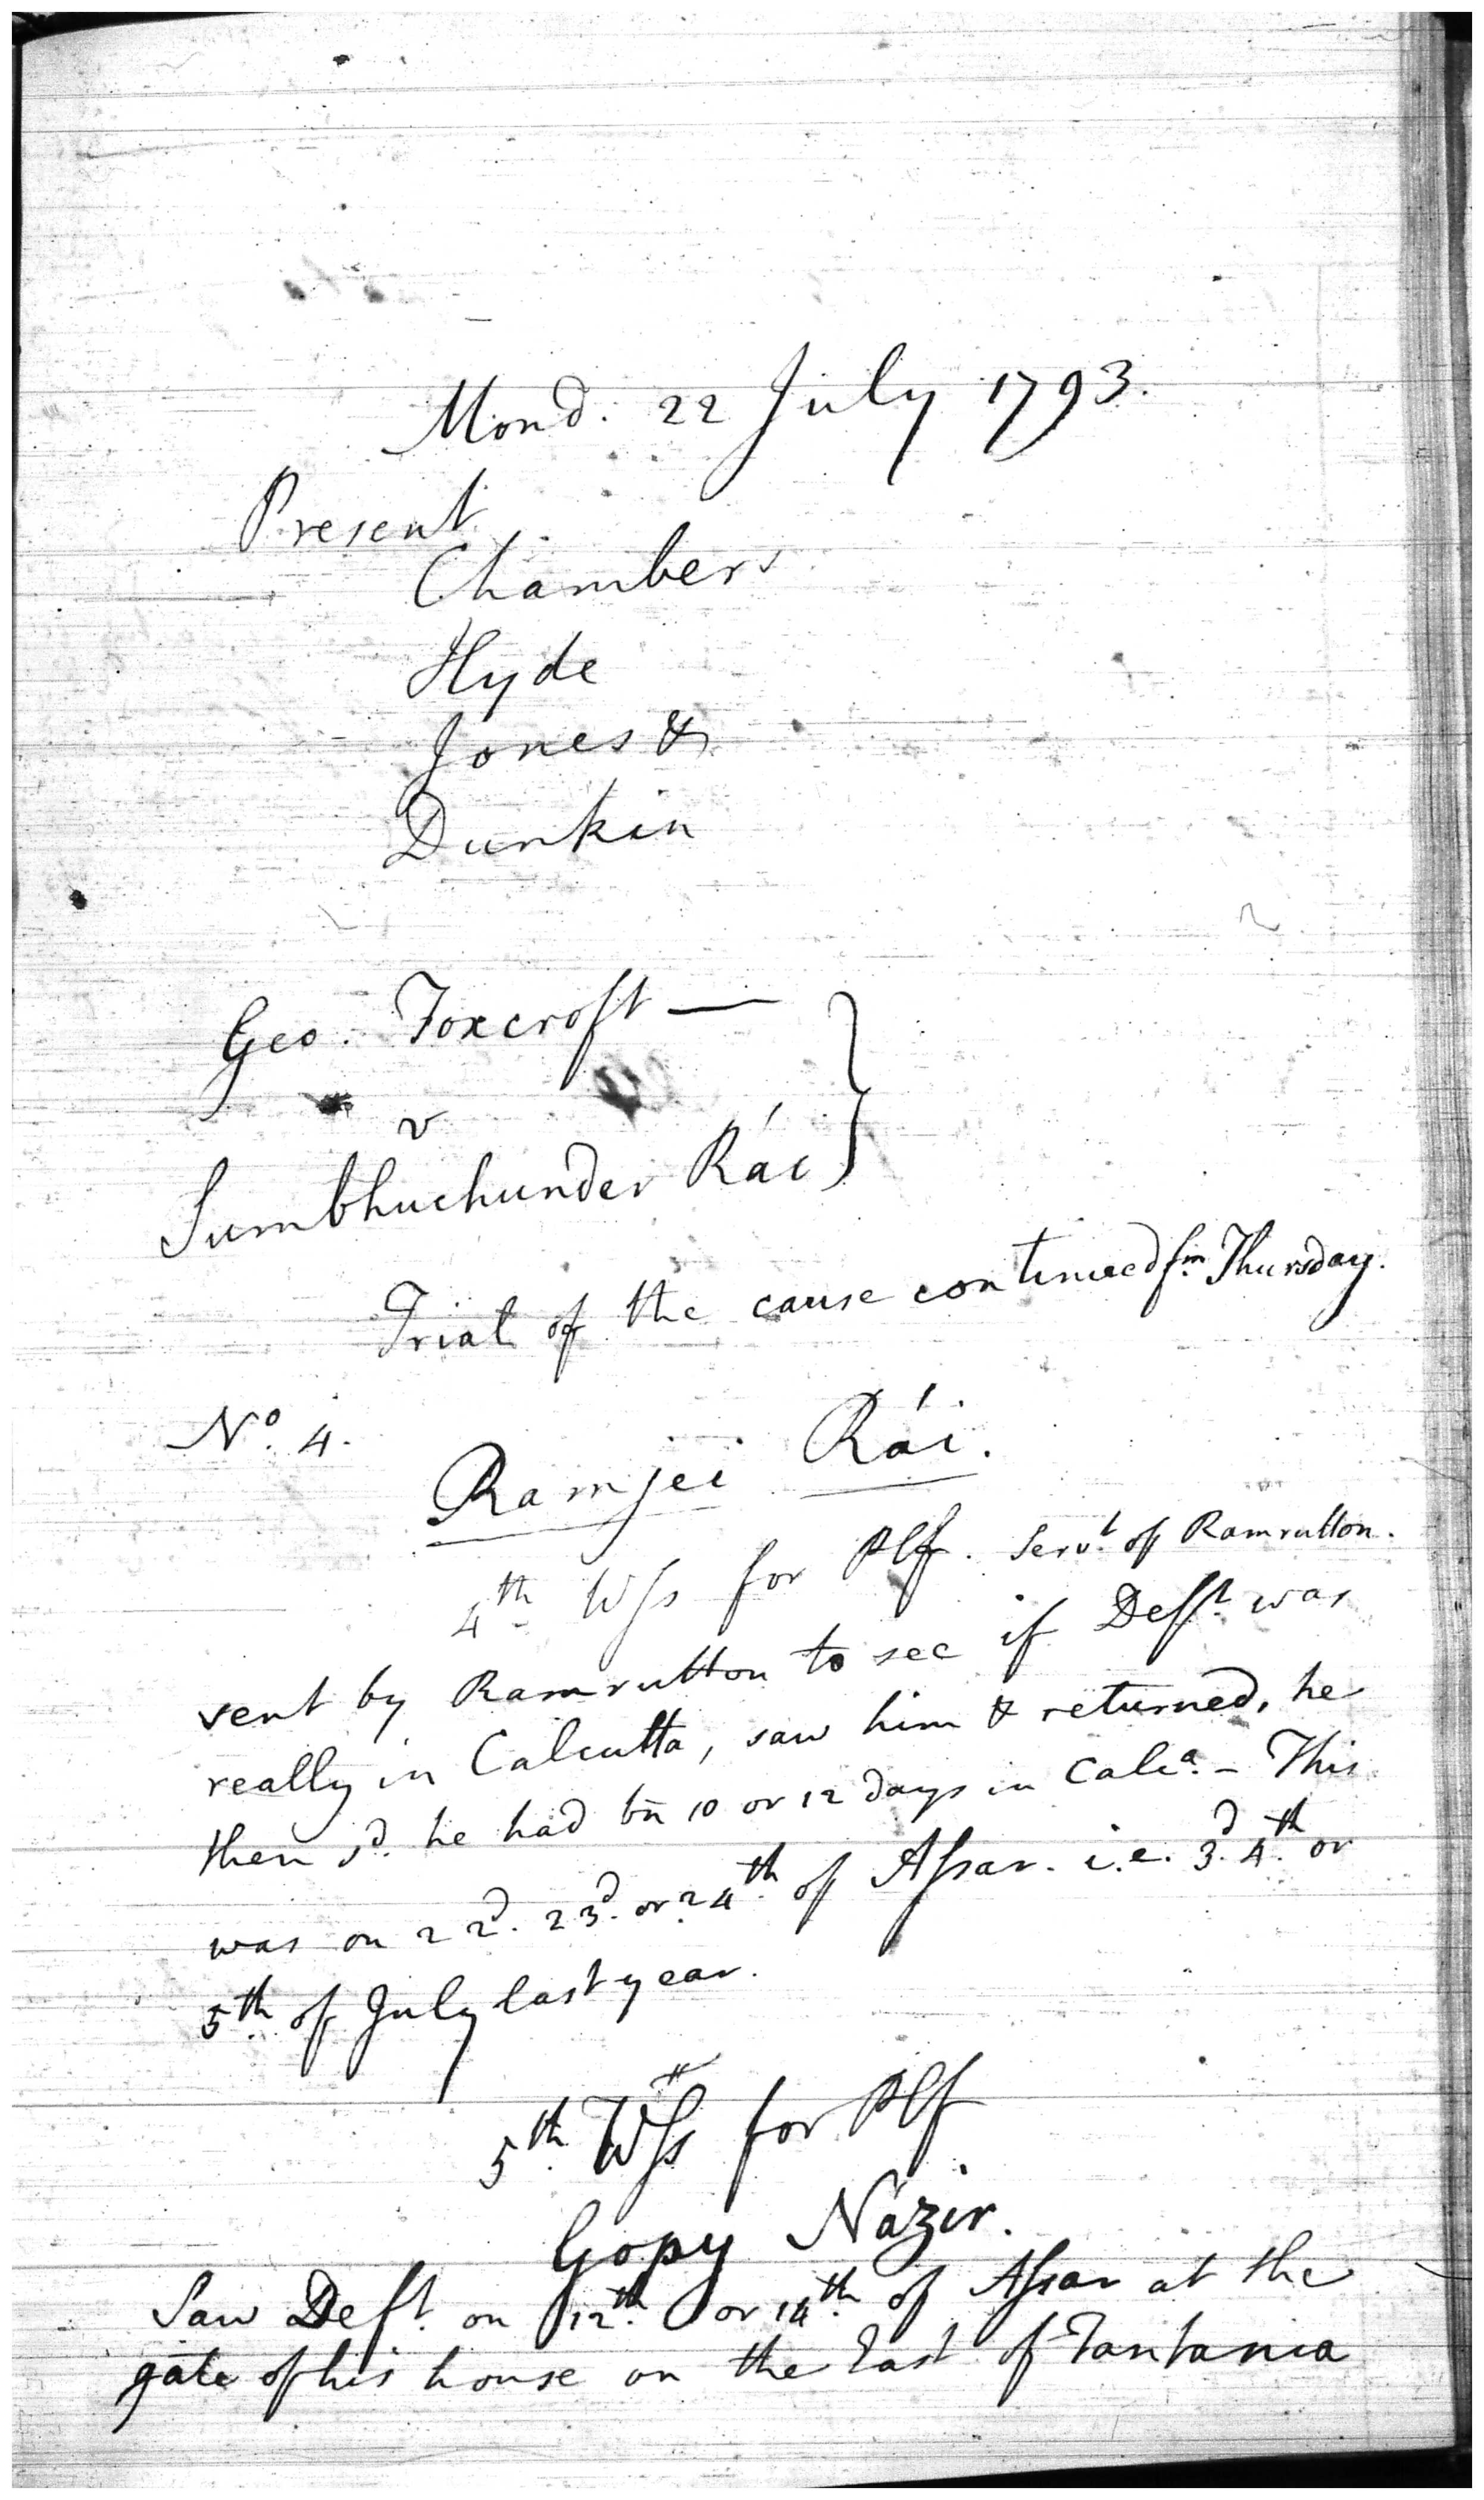 Mond. 22 July 1793.
Present
Chambers
Hyde
Jones &
Dunkin
Geo. Foxcroft —
v
Sumbhuchunder Rái
Trial of the cause continued fm. Thursday.
No. 4.
Ramjei Rái.
4th Wss for Plf. Servt. of Ramrutton.
sent by Ramrutton to see if Deft. was
really in Calcutta, saw him & returned, he
then sd. he had bn 10 or 12 days in Cala. – This
was on 22d. 23d. or 24th of Assar. i.e. 3d. 4th. or
5th of July last year.
5th Wss for Plf
Gopy Názir.
Saw Deft. on 12th. or 14th. of Assar at the
gate of his house on the East of Tantania